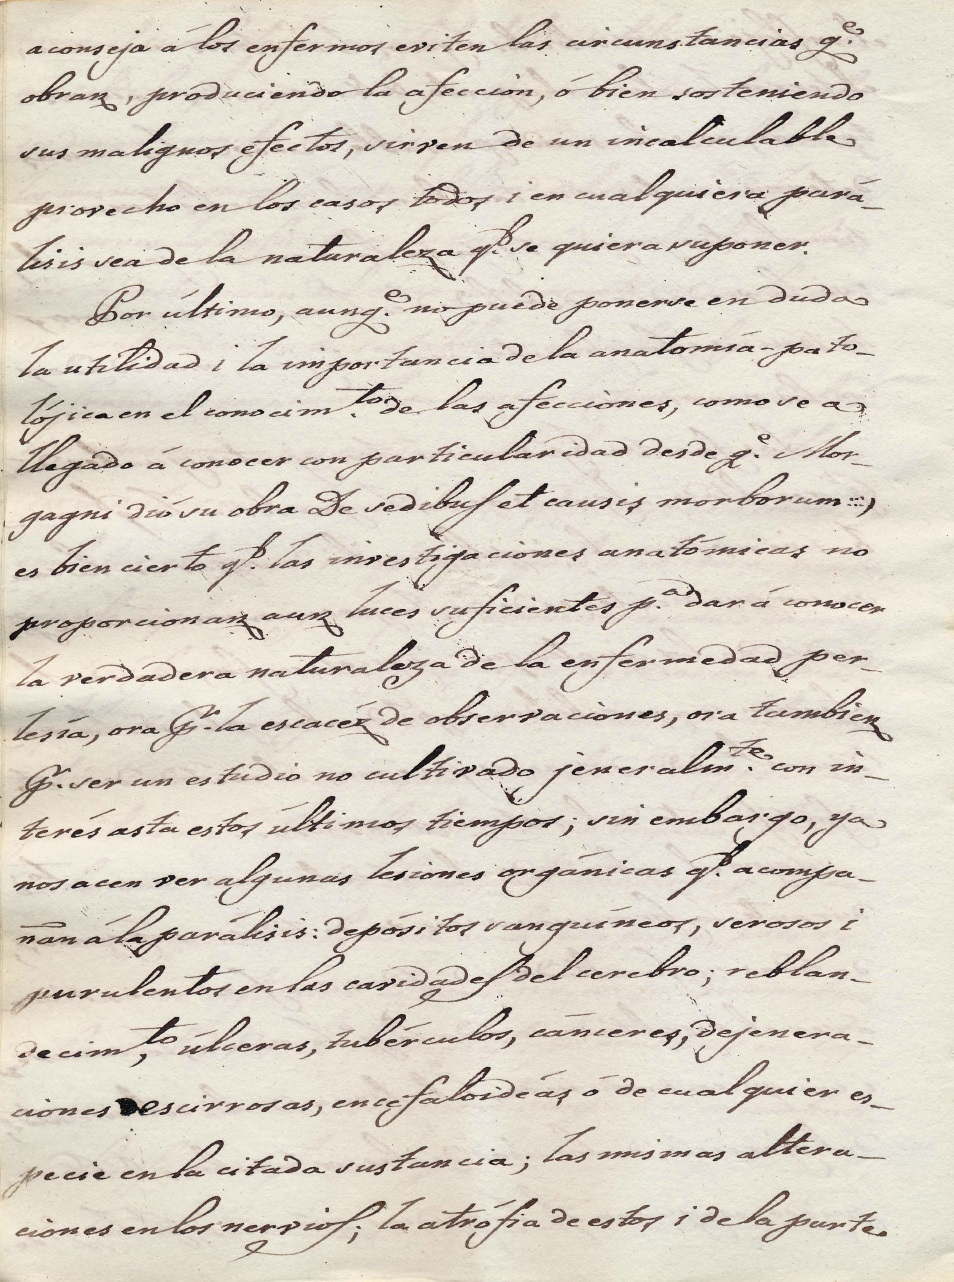 aconseja á los enfermos eviten las circunstancias q.e
obran, produciendo la afeccion, ó bien sosteniendo
sus malignos efectos, sirven de un incalculable
provecho en los casos todos i en cualquiera pará-
lisis sea de la naturaleza q.e se quiera suponer.
Por último, aunq.e no puede ponerse en duda
la utilidad i la importancia de la anatomía-pato-
lójica en el conocim.to de las afecciones, como se a
llegado á conocer con particularidad desde q.e Mor-
gagni dió su obra De sedibus et causis morborum...,
es bien cierto q.e las investigaciones anatómicas no
proporcionan aun luces suficientes p.a dar á conocer
la verdadera naturaleza de la enfermedad per-
lesía, ora p.r la escacéz de observaciones, ora tambien
p.r ser un estudio no cultivado jeneralm.te con in-
terés asta estos últimos tiempos; sin embargo, ya
nos acen ver algunas lesiones orgánicas q.e acompa-
ñan á la parálisis: depósitos sanguíneos, serosos i
purulentos en las cavidades del cerebro; reblan-
decim.to, úlceras, tubérculos, cánceres, dejenera-
ciones escirrosas, encefaloideás ó de cualquier es-
pecie en la citada sustancia; las mismas altera-
ciones en los nervios; la atrófia de estos i de la parte